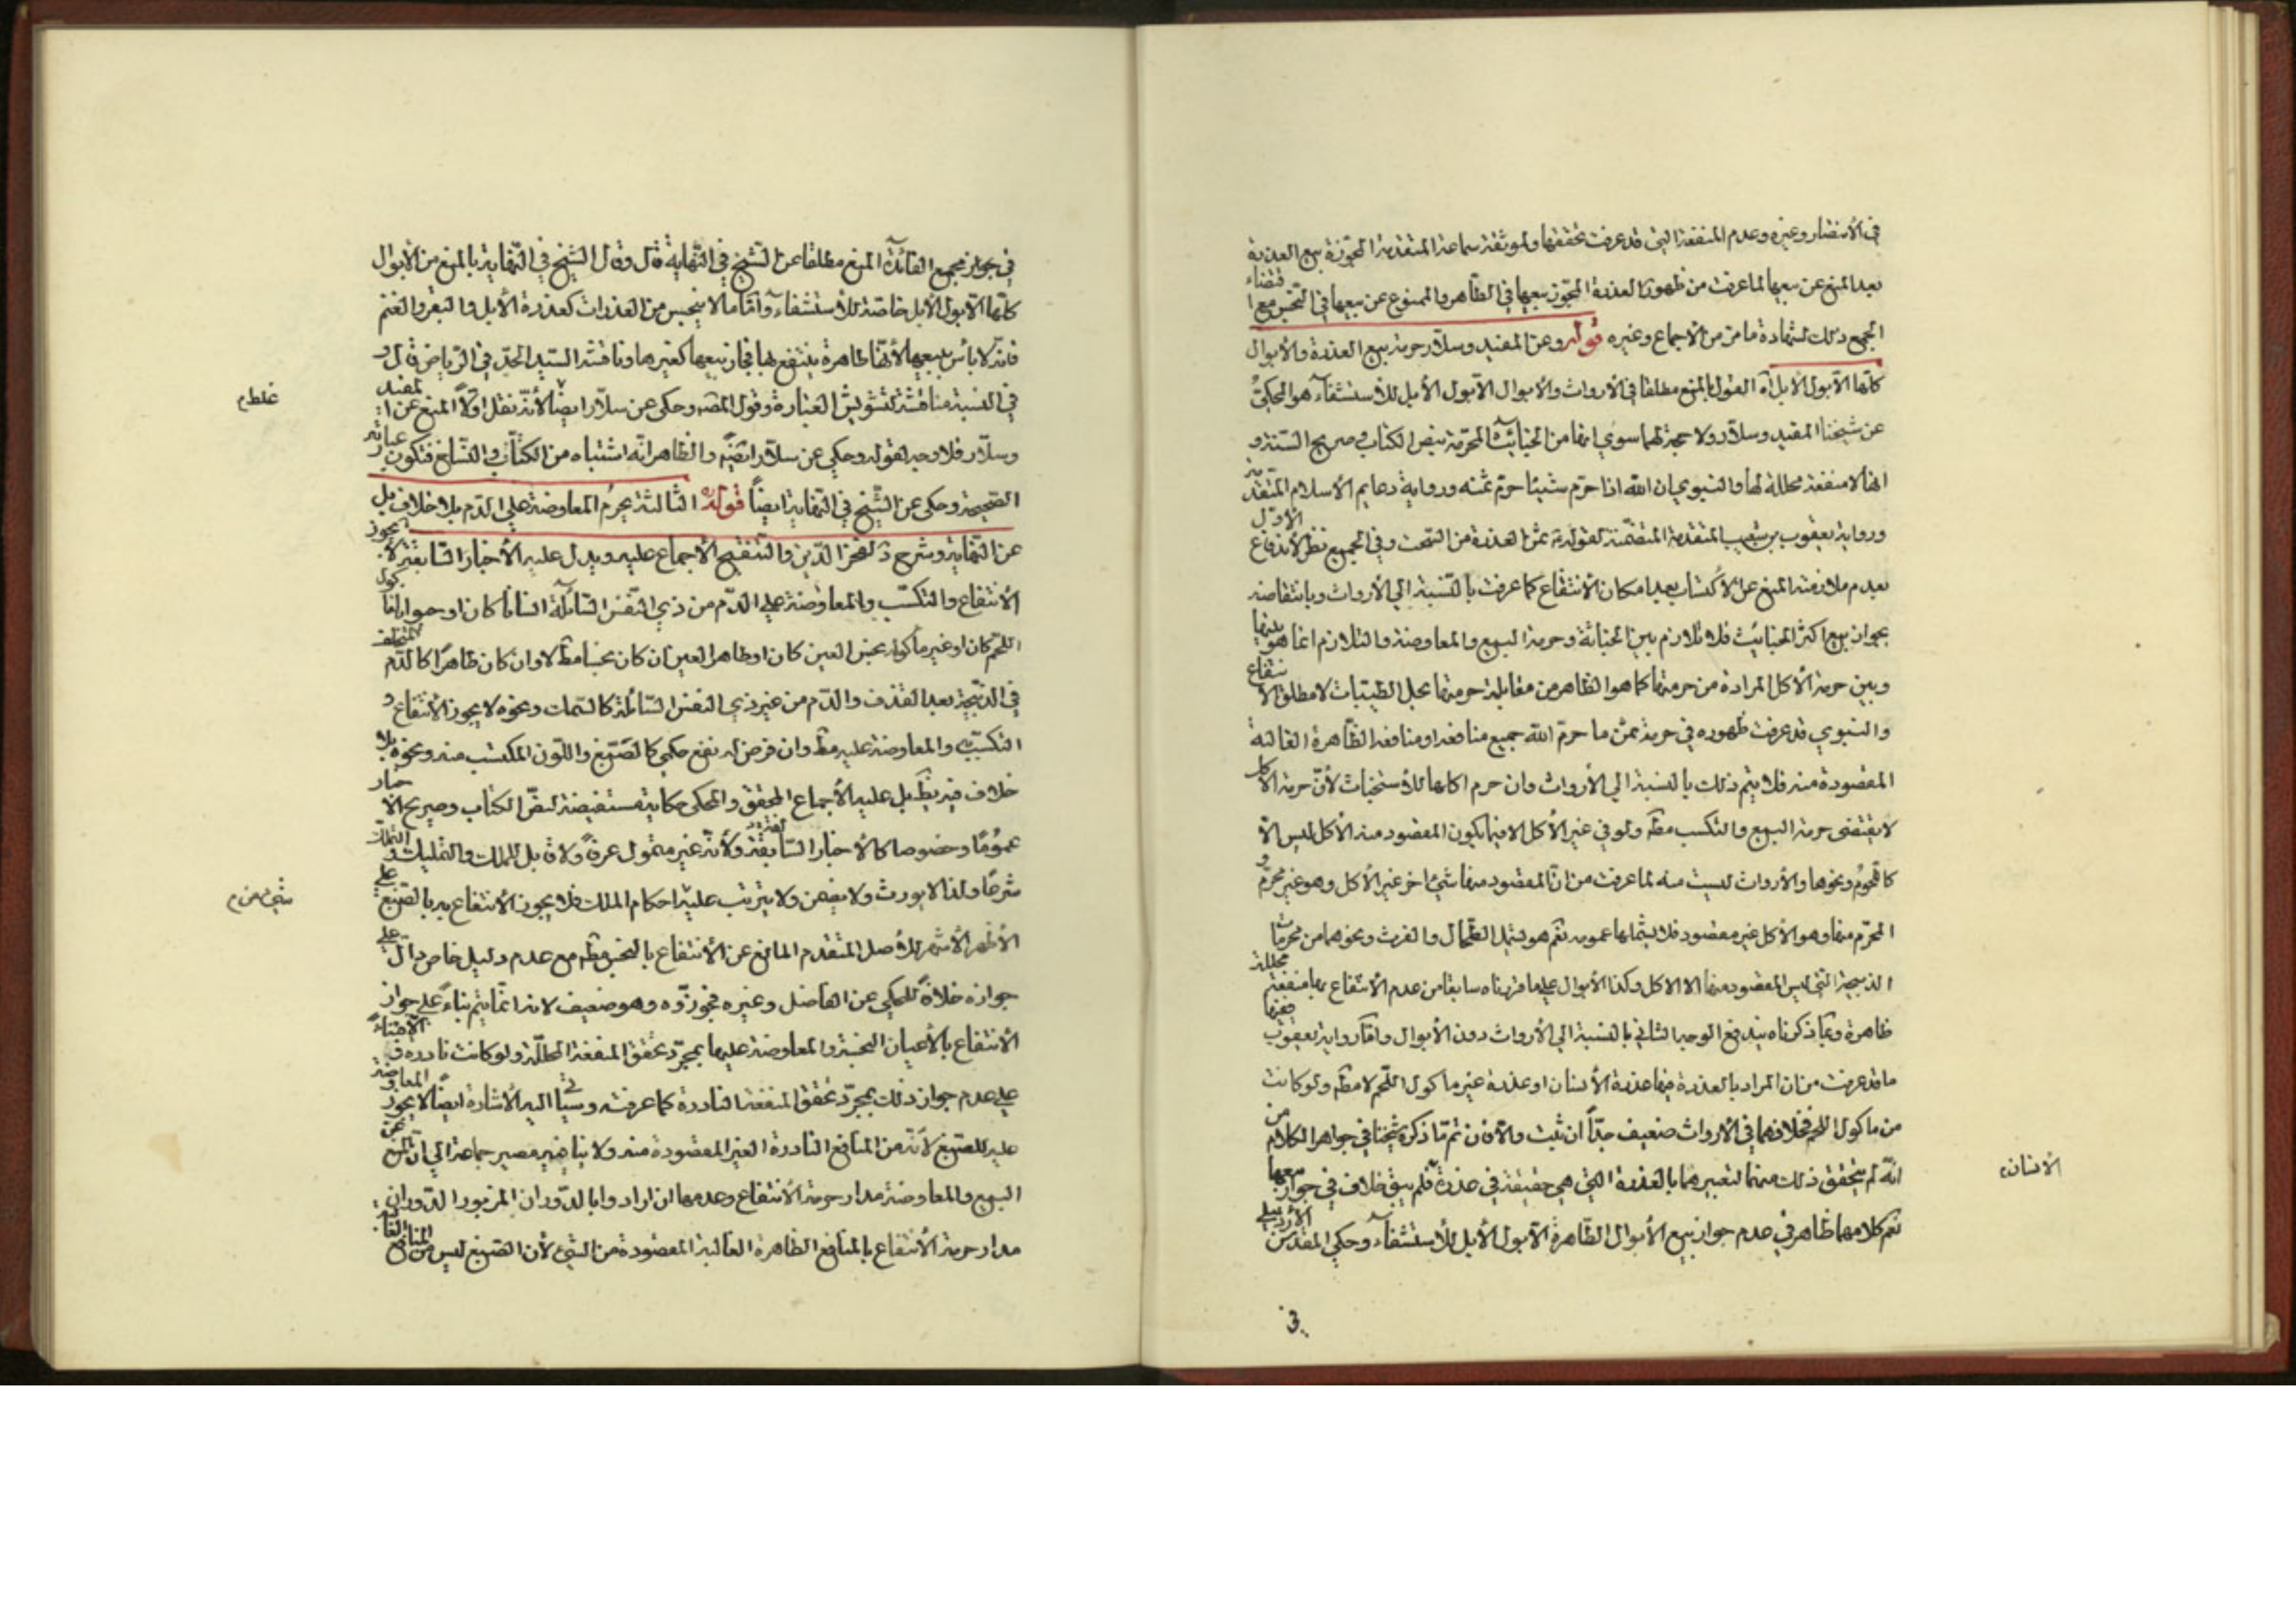 في الأستضار وغيره وعدم المنفعة التي قد عرفت تحققها ولموثقة سماعة المتقدمة المجوّزة بيع العذرة
بعد المنع عن بيعها لما عرفت من ظهور العذرة المجوّز بيعها في الطاهر والممنوع عن بيعها في النجس مع اقتضاء
الجمع ذلك لشهادة ما مرّ من الاجماع وغيره قوله وعن المفيد وسلّار حرمة بيع العذرة والأبوال
كلّها الّا بول الأبل اه القول بالمنع مطلقا في الأرواث والأبوال الّا بول الأبل للأستشفاء هو المحكيّ
عن شيخنا المفيد وسلّار ولا حجة لهما سوى انها من الخبائث المحرّمة بنصّ الكتاب وصريح السنّة و
انها لا منفعة محللة لها والنبوي ان الله اذا حرّم شيئا حرّم ثمنه ورواية دعايم الأسلام المتقدّمة
ورواية يعقوب بن شعيب المتقدمة المتضمّنة لقوله ثمن العذرة من السّحت وفي الجميع نظر لأندفاع الأوّل
بعدم ملازمة المنع عن الأكتساب بعد امكان الأنتفاع كما عرفت بالنّسبة الى الأرواث وبانتقاضه
بجواز بيع اكثر الخبائث فلا تلازم بين الخباثة وحرمة البيع والمعاوضة والتلازم انما هو بينها
وبين حرمة الأكل المرادة من حرمتها كما هو الظاهر من مقابلة حرمتها بحل الطيّبات لا مطلق الانتفاع
والنبوي قد عرفت ظهوره في حرمة ثمن ما حرّم الله جميع منافعه او منافعه الظّاهرة الغالبة
المقصودة منه فلا يتم ذلك بالنسبة الى الأرواث وان حرم اكلها للأستخباث لأنّ حرمة الأكل
لا يقتضى حرمة البيع والتكسب مطه ولو في غير الأكل الا فيما يكون المقصود منه الأكل ليس الّا
كاللحوم ونحوها والأرواث ليست منه لما عرفت من انّ المقصود منها شئ اخر غير الأكل وهو غير محرّم و
المحرّم منها وهو الأكل غير مقصود فلا يشملها عمومه نعم هو يشمل الطحال والفرث ونحوهما من محرمات
الذبيحة التي ليس المقصود منها الا الاكل وكذا الأبوال على ما قرّرناه سابقا من عدم الأنتفاع بها منفعة محللة
ظاهرة وبما ذكرناه يندفع الوجه الثاني بالنسبة الى الأرواث دون الأبوال وامّا رواية يعقوب ففيها
ما قد عرفت من ان المراد بالعذرة فيها عذرة الأنسان او عذرة غير ماكول اللّحم لا مطه ولو كانت
من ماكول اللحم فخلافهما في الأرواث ضعيف جدّاً ان ثبت والّا فان تم ما ذكره شيخنا في جواهر الكلام من
انّه لم يتحقق ذلك منهما لتعبيرهما بالعذرة التي هي حقيقة في عذرة فلم يبق خلاف في جواز بيعها
الأنسان
نعم كلامهما ظاهر في عدم جواز بيع الأبوال الطّاهرة الّا بول الأبل للأستشفاء وحكى المقدّس الأردبيلي
في
في مجمع الفائدة المنع مطلقا عن الشّيخ في النّهاية قال وقال الشّيخ في النّهاية بالمنع من الأبوال
كلّها الّا بول الأبل خاصّة للأستشفاء وامّا ما لا ينجس من العذرات كعذرة الأبل والبقر والغنم
فانّه لا بأس ببيعها لأنّها طاهرة ينتفع بها فجاز بيعها كغيرها وناقشه السيّد الجدّ في الرّياض قال و
في النسبة مناقشة لتشويش العبارة وقول المصه وحكى عن سلّار ايضا لأنّه نقل اوّلاً المنع عن المفيد
غلط م
وسلّار فلا وجه لقوله وحكى عن سلّار ايضا والظاهر انّه اشتباه من الكتّاب والنسّاخ فتكون عبارته
الصّحيحة وحكى عن الشّيخ في النّهاية ايضاً قوله الثالثة يحرم المعاوضة على الدّم بلا خلاف بل
عن النّهاية وشرح د لفخر الدّين والتنقيح الأجماع عليه ويدل عليه الأخبار السّابقة لا يجوز
الأنتفاع والتكسّب والمعاوضة على الدّم من ذي النّفس السّائلة انسانا كان او حيوانا ماكول
اللّحم كان او غير ماكوله نجس العين كان او طاهر العين ان كان نجسا مطه لا وان كان طاهراً كالدّم المتخلف
في الذبيحة بعد القذف والدّم من غير ذي النفس السّائلة كالسّمك ونحوه لا يجوز الأنتفاع و
التكسّب والمعاوضة عليه مطه وان فرض له نفع حكمي كالصّبغ واللّون المكتسب منه ونحوه بلا
خلاف فيه يظهر بل عليه الأجماع المحقق والمحكى حكاية مستفيضة لنصّ الكتاب وصريح الأخبار
عموماً وخصوصا كالأخبار السّابقة ولأنّه غير متموّل عرفاً ولا قابل للملك والتمليك والتملّك
شرعاً ولذا لا يورث ولا يضمن ولا يترتب عليه احكام الملك فلا يجوز الأنتفاع به بالصّبغ على
شئ من م
الأظهر الأشهر للأصل المتقدم المانع عن الأنتفاع بالنجس مطه مع عدم دليل خاص دالّ على
جوازه خلافاً للمحكى عن الفاضل وغيره فجوزّوه وهو ضعيف لانه انّما يتم بناءً على جواز
الأنتفاع بالأعيان النجسة والمعاوضة عليها بمجرّد تحقق المنفعة المحلّلة ولو كانت نادرة
على عدم جواز ذلك بمجرّد تحقق المنفعة النادرة كما عرفته وسيأتي اليه الأشارة ايضاً لا يجوز المعاوضة
عليه للصبغ لأنّه من المنافع النادرة الغير المقصودة منه ولا ينافيه مصير جماعة الى انّ المنع عن
البيع والمعاوضة مدار حرمة الأنتفاع وعدمها ان ارادوا بالدّوران المزبور الدّوران
مدار حرمة الأنتفاع بالمنافع الظاهرة الغالبة المقصودة من الشئ لأن الصّبغ ليس من المنافع